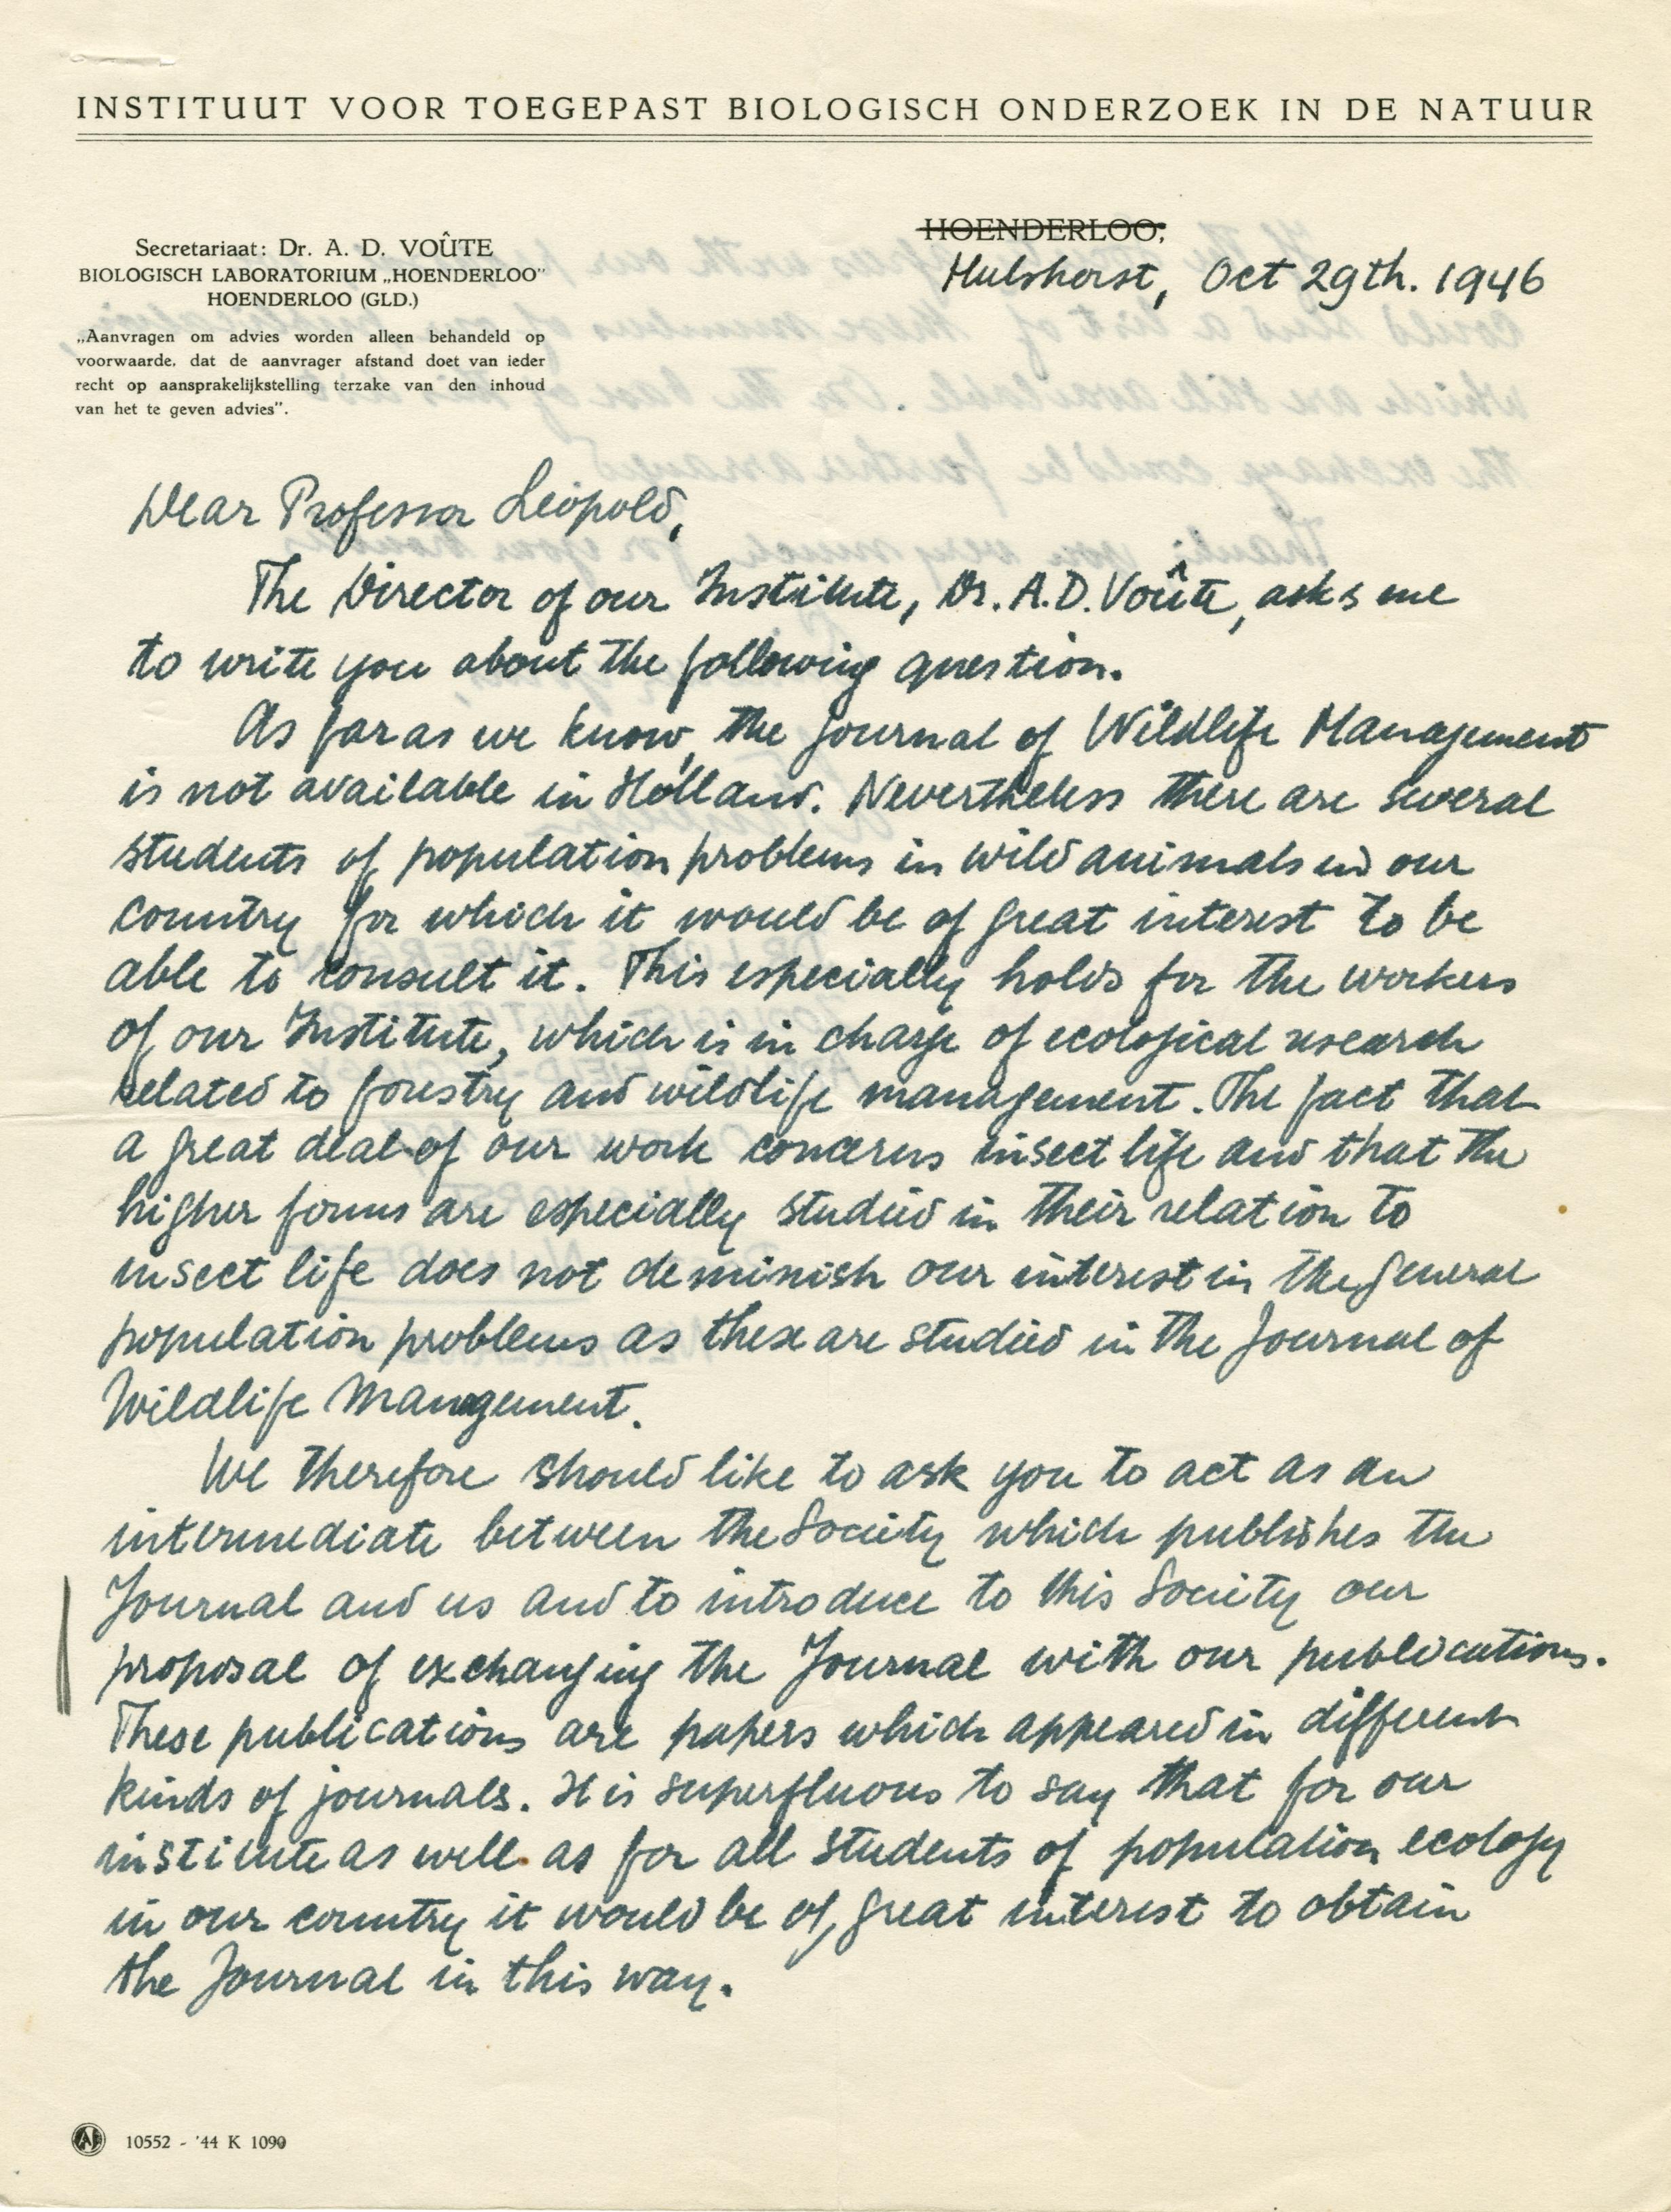 INSTITUUT VOOR TOEGEPAST BIOLOGISCH ONDERZOEK IN DE NATUUR
Secretariaat: Dr. A. D. VOÛTE
BIOLOGISCH LABORATORIUM „HOENDERLOO"
HOENDERLOO (GLD.)
„Aanvragen om advies worden alleen behandeld op
voorwaarde, dat de aanvrager afstand doet van ieder
recht op aansprakelijkstelling terzake van den inhoud
van het te geven advies".
HOENDERLOO,
Hulshorst, Oct 29th. 1946
Dear Professor Leopold,
The Director of our Institute, Dr. A.D. Voûte, asks me
to write you about the following question.
As far as we know, the Journal of Wildlife Management
is not available in Holland. Nevertheless there are several
students of population problems in wild animals in our
country for which it would be of great interest to be
able to consult it. This especially holds for the workers
of our Institute, which is in charge of ecological research
related to forestry and wildlife management. The fact that
a great deal of our work concerns insect life and that the
higher forms are especially studied in their relation to
insect life does not deminish our interest in the general
population problems as these are studied in the Journal of
Wildlife Management.
We therefore should like to ask you to act as an
intermediate between the Society which publishes the
Journal and us and to introduce to this Society our
proposal of exchanging the Journal with our publications.
These publications are papers which appeared in different
kinds of journals. It is superfluous to say that for our
institute as well as for all students of population ecology
in our country it would be of great interest to obtain
the Journal in this way.
10552 - '44 K 1090